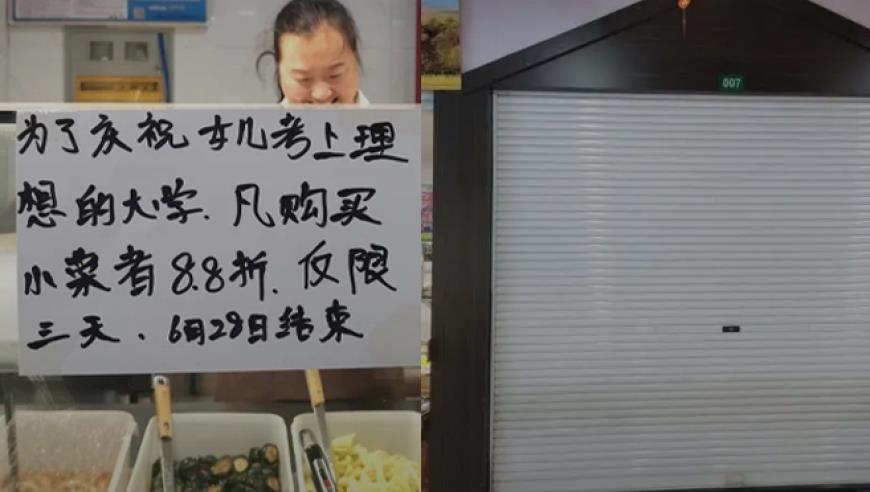 为了庆祝女儿考上理
想的大学.凡购买
小菜者8.8折.仅限
三天、6月28日结束
007